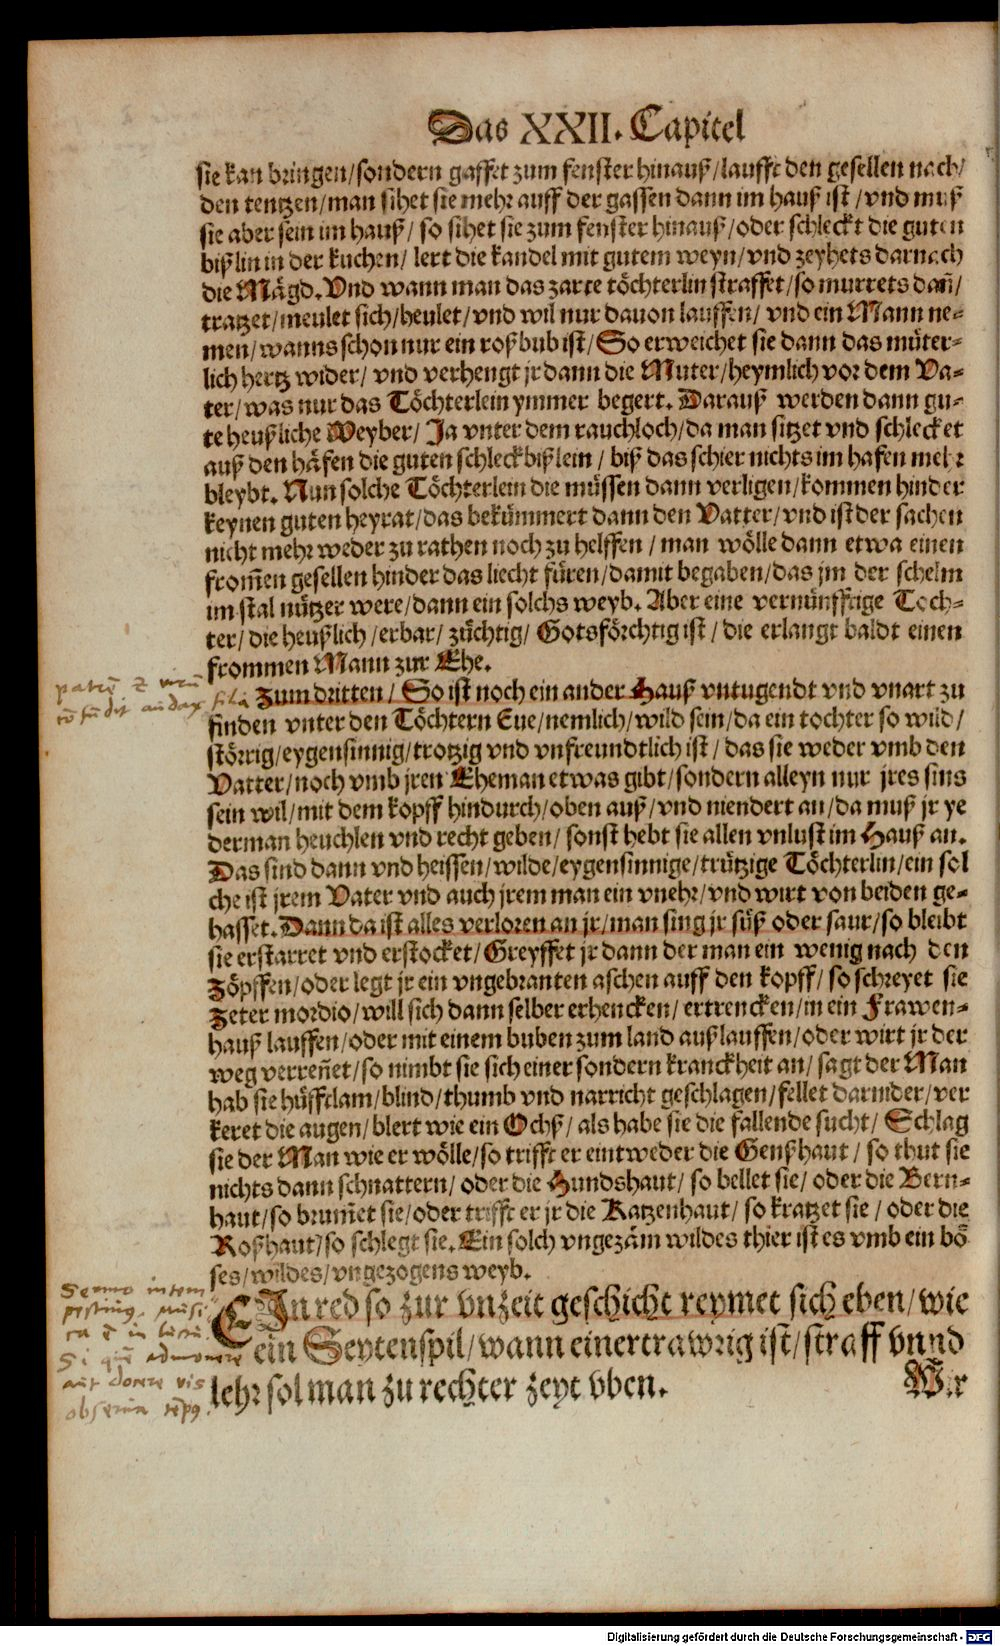 Das XXII. Capitel
sie kan bringen/sondern gaffet zum fenster hinauß/laufft den gesellen nach/
den tentzen/man sihet sie mehr auff der gassen dann im hauß ist/vnd muß
sie aber sein im hauß/ so sihet sie zum fenster hinauß/oder schleckt die guten
bißlin in der kuchen/ lert die kandel mit gutem weyn/vnd zeyhets darnach
die Mägd. Vnd wann man das zarte töchterlin straffet/so murrets dañ/
tratzet/meulet sich/heulet/vnd wil nur dauon lauffen/ vnd ein Mann ne-
men/wanns schon nur ein roßbub ist/So erweichet sie dann das müter-
lich hertz wider/ vnd verhengt jr dann die Muter/heymlich vor dem Va-
ter/was nur das Töchterlein ymmer begert. Darauß werden dann gu-
te heußliche Weyber/ Ja vnter dem rauchloch/da man sitzet vnd schlecket
auß den häfen die guten schleckbißlein/ biß das schier nichts im hafen mehr
bleybt. Nun solche Töchterlein die müssen dann verligen/kommen hinder
keynen guten heyrat/das bekümmert dann den Vatter/vnd ist der sachen
nicht mehr weder zu rathen noch zu helffen/ man wölle dann etwa einen
from̃en gesellen hinder das liecht füren/damit begaben/das jm der schelm
im stal nützer were/dann ein solchs weyb. Aber eine vernünfftige Toch-
ter/die heußlich/erbar/ züchtig/ Gotsförchtig ist/die erlangt baldt einen
frommen Mann zur Ehe.
patrē & virū
cōfūdit audax filia
Zum dritten/ So ist noch ein ander Hauß vntugendt vnd vnart zu
finden vnter den Töchtern Eue/nemlich/wild sein/da ein tochter so wild/
störrig/eygensinnig/trotzig vnd vnfreundtlich ist/das sie weder vmb den
Vatter/noch vmb jren Eheman etwas gibt/sondern alleyn nur jres sins
sein wil/mit dem kopff hindurch/oben auß/vnd niendert an/da muß jr ye
derman heuchlen vnd recht geben/ sonst hebt sie allen vnlust im Hauß an.
Das sind dann vnd heissen/wilde/eygensinnige/trützige Töchterlin/ein sol
che ist jrem Vater vnd auch jrem man ein vnehr/vnd wirt von beiden ge-
hasset. Dann da ist alles verloren an jr/man sing jr süß oder saur/so bleibt
sie erstarret vnd erstocket/Greyffet jr dann der man ein wenig nach den
Zöpffen/oder legt jr ein vngebranten aschen auff den kopff/ so schreyet sie
Zeter mordio/will sich dann selber erhencken/ertrencken/in ein Frawen-
hauß lauffen/oder mit einem buben zum land außlauffen/oder wirt jr der
weg verreñet/so nimbt sie sich einer sondern kranckheit an/sagt der Man
hab sie hüfftlam/blind/thumb vnd narricht geschlagen/fellet darnider/ver
keret die augen/blert wie ein Ochß/als habe sie die fallende sucht/ Schlag
sie der Man wie er wölle/so trifft er eintweder die Genßhaut/ so thut sie
nichts dann schnattern/ oder die Hundshaut/ so bellet sie/oder die Bern-
haut/so brum̃et sie/oder trifft er jr die Katzenhaut/ so kratzet sie/oder die
Roßhaut/so schlegt sie. Ein solch vngezäm wildes thier ist es vmb ein bö
ses/wildes/vngezogens weyb.
Sermo intem
pestivus musi
ca ē in luctu.
Si quē admonere
aut docere vis
observa tēpus.
Ein red so zur vnzeit geschicht reymet sich eben/wie
ein Seytenspil/wann einer trawrig ist/straff vnnd
lehr sol man zu rechter zeyt vben.
Wer
Digitalisierung gefördert durch die Deutsche Forschungsgemeinschaft - DFG